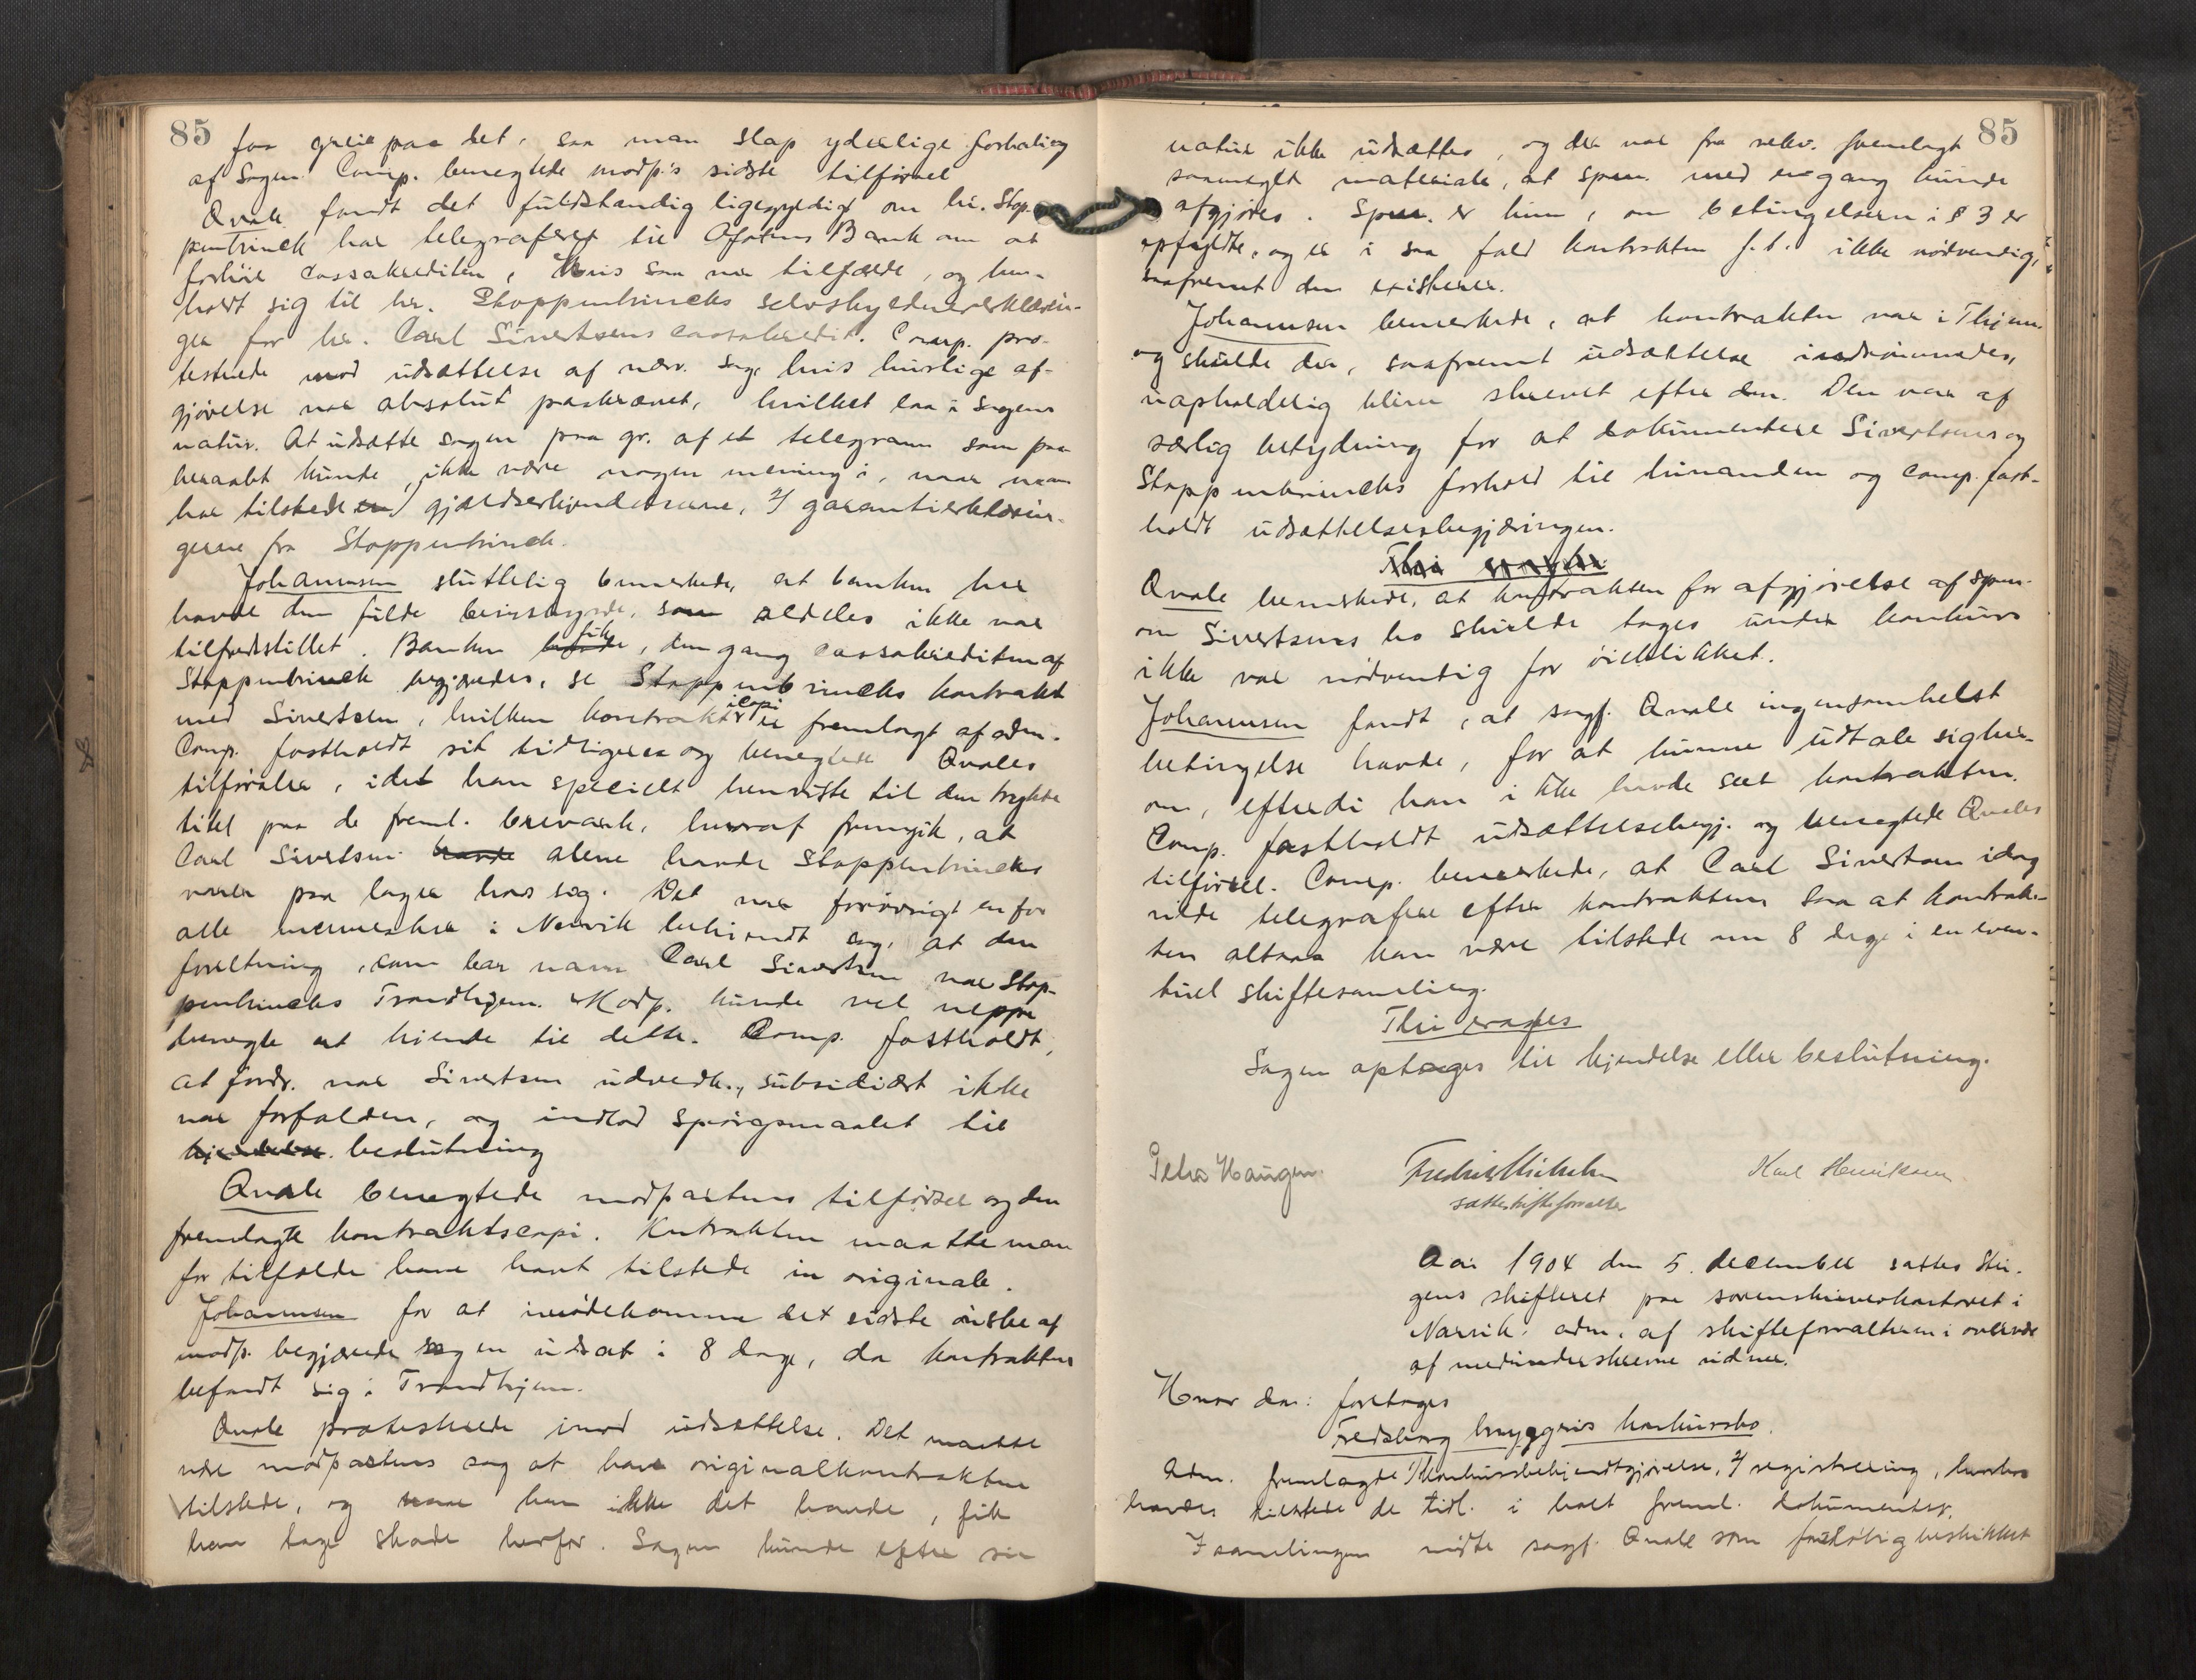 85
faa greie paa det, saa man slap yderlige forhaling
af sagen. Comp. benegtede modp.'s sidste tilførsel
Qvale fandt det fuldstændig ligegyldigt om hr. Stop-
penbrinck har telegraferet til Ofotens Bank om at
forhøie cassakrediten, hvis saa var tilfælde, og hen-
holdt sig til hr. Stoppenbrincks selvskyldnererklærin-
ger for hr. Carl Sivertsens cassakredit. Comp. pro-
testerede mod udsættelse af nærv. sag, hvis hurtige af-
gjørelse var absolut paakrævet, hvilket laa i sagens
natur. At udsætte sagen paa gr. af et telegram som paa-
beraabt kunde ikke være nogen mening i, naar man
har tilstede gjældserkjendelserne, 2/ garantierklærin-
gerne fra Stoppenbrinck.
Johannesen sluttelig bemerkede, at banken her
havde den fulde bevisbyrde, som aldeles ikke var
tilfredsstillet. Banken fik, dengang cassakrediten af
Stoppenbrinck begjæredes, se Stoppenbrincks kontrakt
med Sivertsen, hvilken kontrakt i copi er fremlagt af adm.
Comp. fastholdt sit tidligere og benegtede Qvales
tilførsler, idet han specielt henviste til den trykte
titel paa de freml. brevark, hvoraf fremgik, at
Carl Sivertsen havde alene havde Stoppenbrincks
varer paa lager hos sig. Det var forøvrigt en for
alle mennesker i Narvik bekjendt sag, at den
forretning, som bar navn Carl Sivertsen var Stop-
penbrincks Trondhjem. Modp. kunde vel neppe
benegte at kjende til dette. Comp. fastholdt,
at fordr. var Sivertsen uvedk., subsidiært ikke
var forfalden, og indlod spørgsmaalet til
kjendelse. beslutning
Qvale benegtede modpartens tilførsel og den
fremlagte kontraktscopi. Kontrakten maatte man
for tilfælde have havt tilstede in originale.
Johannesen for at imødekomme det sidste ønske af
modp. begjærede sagen udsat i 8 dage, da kontrakten
befandt sig i Trondhjem.
Qvale protesterede imod udsættelse. Det maatte
være modpartens sag at have originalkontrakten
tilstede, og naar han ikke det havde, fik
han tage skade herfor. Sagen kunde efter sin
85
natur ikke udsættes, og der var fra rekv. fremlagt
saameget materiale, at spm. med engang kunde
afgjøres. Spm. er kun, om betingelsern i § 3 er
opfyldte, og er i saa fald kontrakten f.t. ikke nødvendig,
saafremt den existerer.
Johannesen bemerkede, at kontrakten var i Thjem.
og skulde der, saafremt udsættelse indrømmedes,
uopholdelig bliver skrevet efter den. Den var af
særlig betydning for at dokumentere Sivertsens og
Stoppenbrincks forhold til hinanden og comp. fast-
holdt udsættelsesbegjæringen.
Qvale bemerkede, at kontrakten for afgjørelse af spm.
om Sivertsens bo skulde tages under konkurs
ikke var nødvendig for øieblikket.
Johannesen fandt, at sagf. Qvale ingensomhelst
betingelse havde, for at kunne udtale sig her-
om, efterdi han ikke havde seet kontrakten.
Comp. fastholdt udsættelsesbegj. og benegtede Qvales
tilførsel. Comp. bemerkede, at Carl Sivertsen idag
vilde telegrafere efter kontrakten saa at kontrak-
ten altsaa kan være tilstede om 8 dage i en even-
tuel skiftesamling.
Thi eragtes
Sagen optages til kjendelse eller beslutning.
Peder Haugen Fredrik Michelsen Karl Henriksen
sætteskifteforvalter
Aar 1904 den 5. december sattes Ste-
gens skifteret paa sorenskriverkontoret i
Narvik, adm. af skifteforvalteren i overvær
af medunderskrevne vidner.
Hvor da: foretages
Fredsborg bryggeris konkursbo.
Adm. fremlagde 1/ konkursbekjendtgjørelse, 2/ registrering, hvorhos
havdes tilstede de tidl. i boet freml. dokumenter.
I samlingen mødte sagf. Qvale som foreløbig beskikket